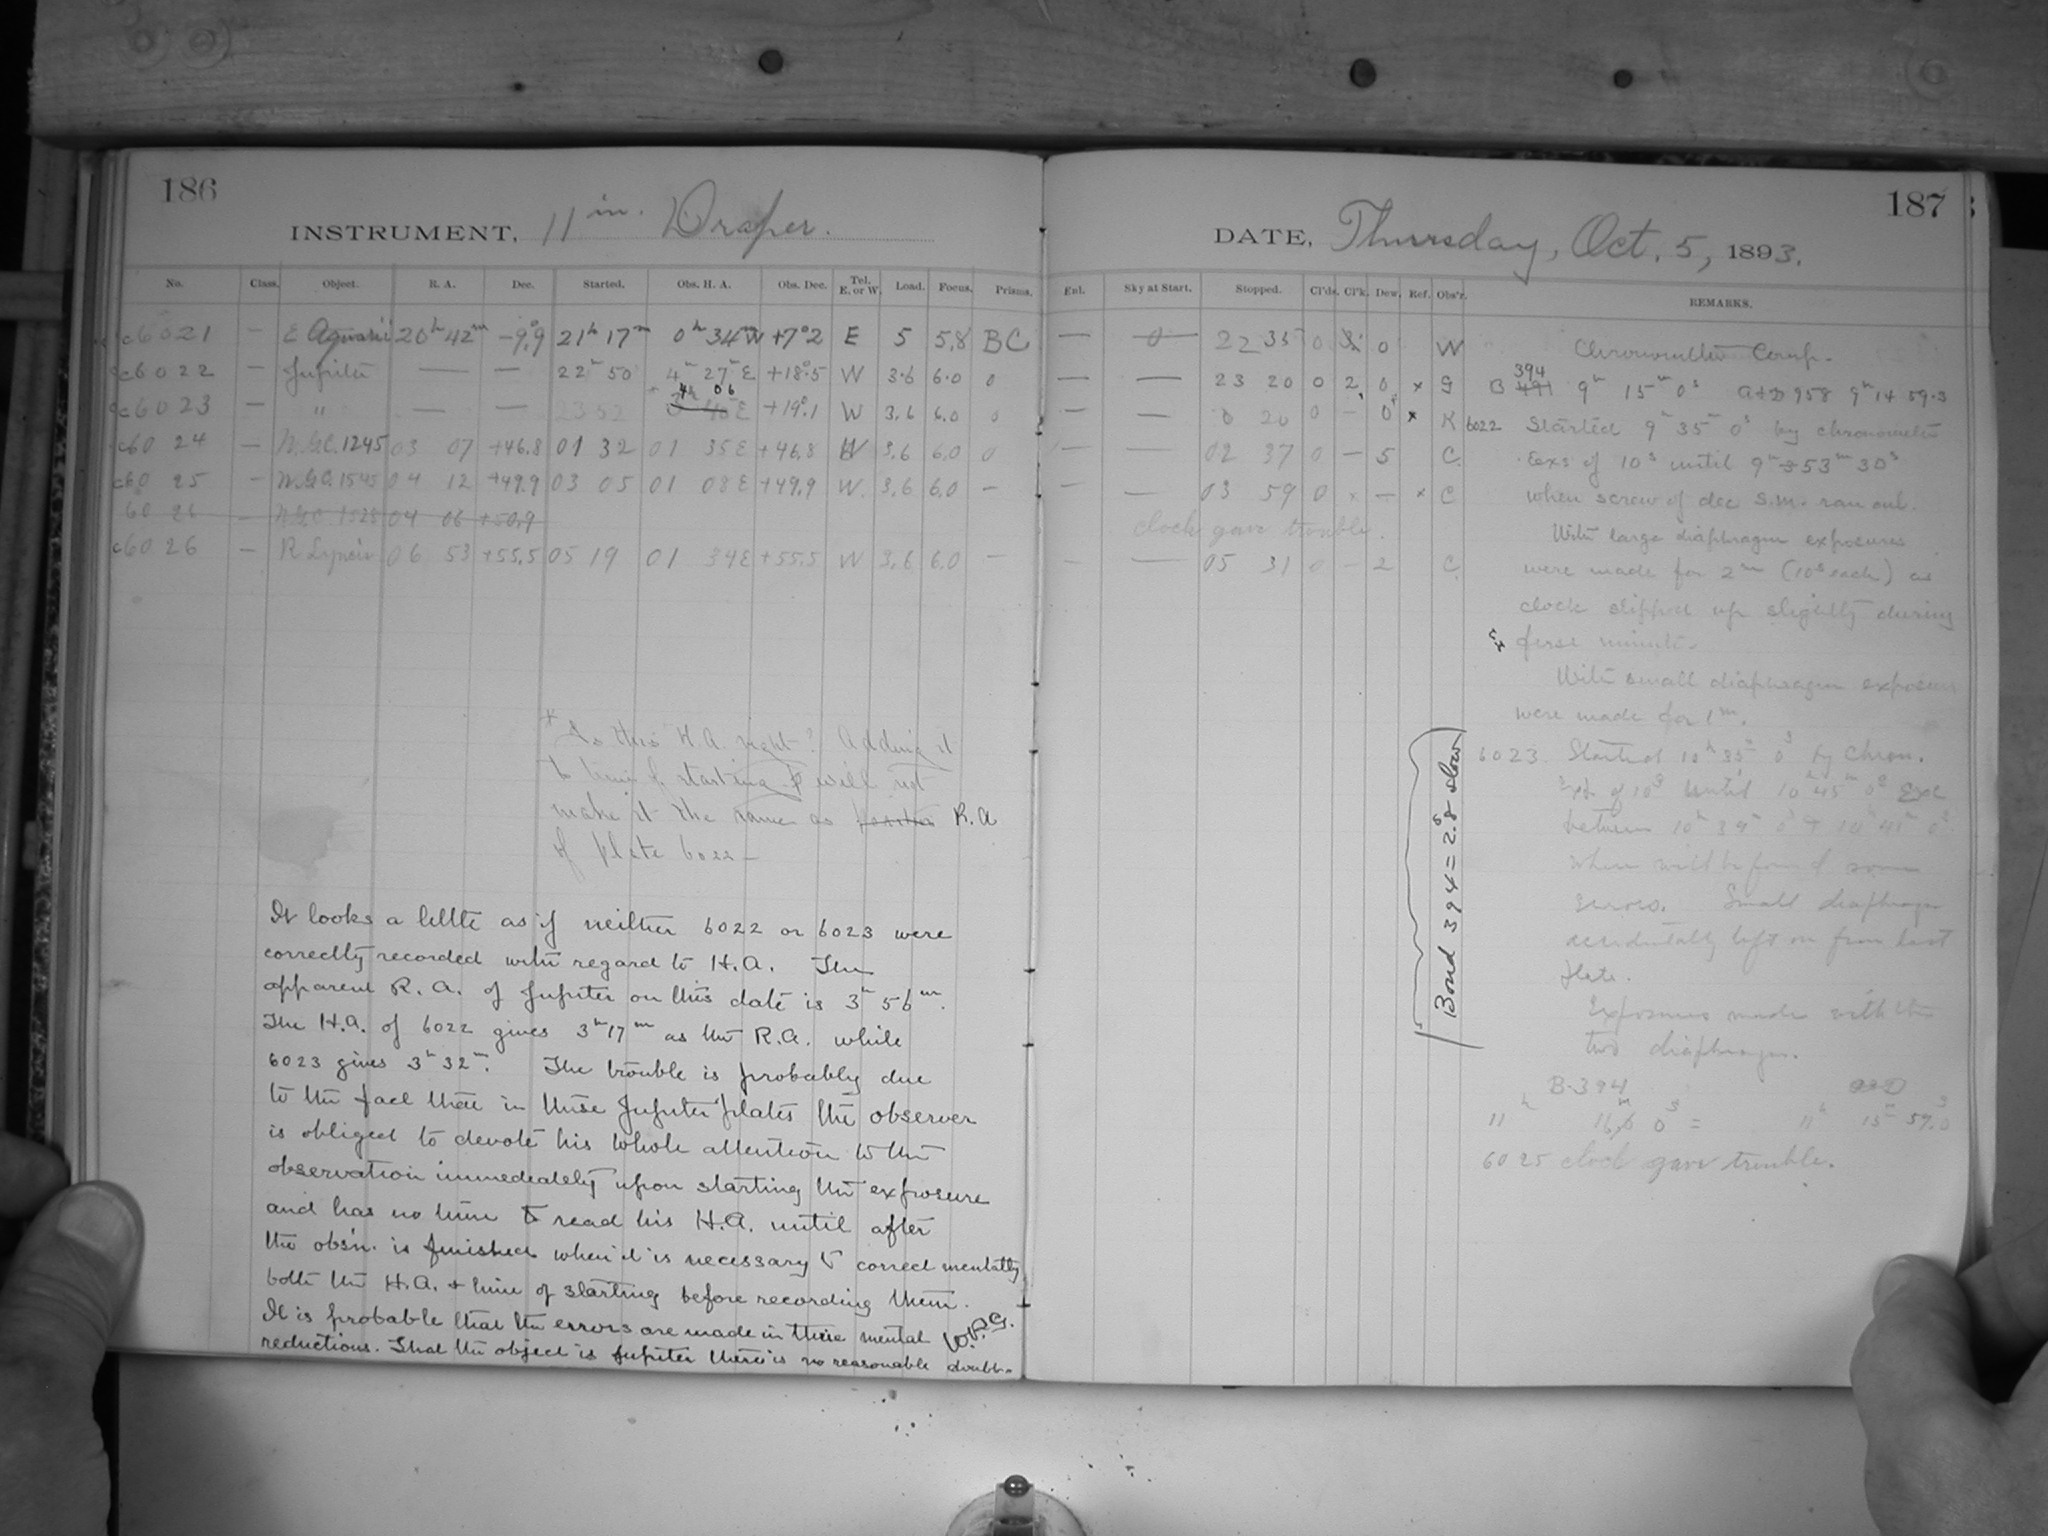 186
INSTRUMENT, 11 in. Draper.
No. Class. Object. R. A. Dec. Started. Obs. H. A. Obs. Dec. Tel. E. or W. Load. Focus. Prisms.
c6021 — E Aquarii 20h 42m -9°.9 21h 17m 0h 34 W +7°2 E 5 5.8 BC
c6022 — Jupiter — — 22h 50 4h 27m E +18°.5 W 3.6 6.0 0
4h 06
c6023 — " — — 23 52 E +19°.1 W 3.6 6.0 0
c6024 — N.G.C. 1245 03 07 +46.8 01 32 01 35 E +46.8 W 3.6 6.0 0
c6025 — N.G.C. 1545 04 12 +49.9 03 05 01 08 E +49.9 W. 3.6 6.0 —
6026 — N.G.C. 1528 04 06 +50.9
c6026 — R Lyncis 06 53 +55.5 05 19 01 34 E +55.5 W 3.6 6.0 —
* Is this H.A. right? Adding it
to time of starting will not
make it the same as R.A
of plate 6022 —
It looks a little as if neither 6022 or 6023 were
correctly recorded with regard to H.A. The
apparent R.A. of Jupiter on this date is 3h 56m.
The H.A. of 6022 gives 3h 17m as the R.A. while
6023 gives 3h 32m. The trouble is probably due
to the fact that in these Jupiter plates the observer
is obliged to devote his whole attention to the
observation immediately upon starting the exposure
and has no time to read his H.A. until after
the obs'n. is finished when it is necessary to correct mentally
both the H.A. + time of starting before recording them.
It is probable that the errors are made in these mental
reductions. That the object is Jupiter there is no reasonable doubt.
W.P.G.
187
DATE, Thursday, Oct. 5, 1893.
Enl. Sky at Start. Stopped. Cl'ds. Cl'k. Dew. Ref. Obs'r. REMARKS.
— 0 22 35 0 0 W
— — 23 20 0 2 0 x G
— — 0 20 0 — 0 x K
— — 02 37 0 — 5 C.
— — 03 59 0 x — x C
clock gave trouble.
— — 05 31 0 — 2 C.
Chronometer Comp.
394
B 491 9h 15m 0s 958 9h 14 59.3
6022 Started 9h 35m 0s by chronometer
Exs of 10s until 9h 53m 30s
when screw of dec s.m. ran out.
With large diaphragm exposures
were made for 2m (10s each) as
clock slipped up slightly during
first minute.
With small diaphragm exposures
were made for 1m.
6023. Started 10h 35m 0s by chron.
Exs. of 10s until 10h 45m 0s Exc
between 10h 39m 0s + 10h 41m 0s
when will be found some
errors. Small diaphragm
accidentally left on from last
plate.
Exposures made with the
two diaphragms.
B. 394
11h 16m 0s = 11h 15m 57.
6025 clock gave trouble.
Bond 394 = 2.8s slow